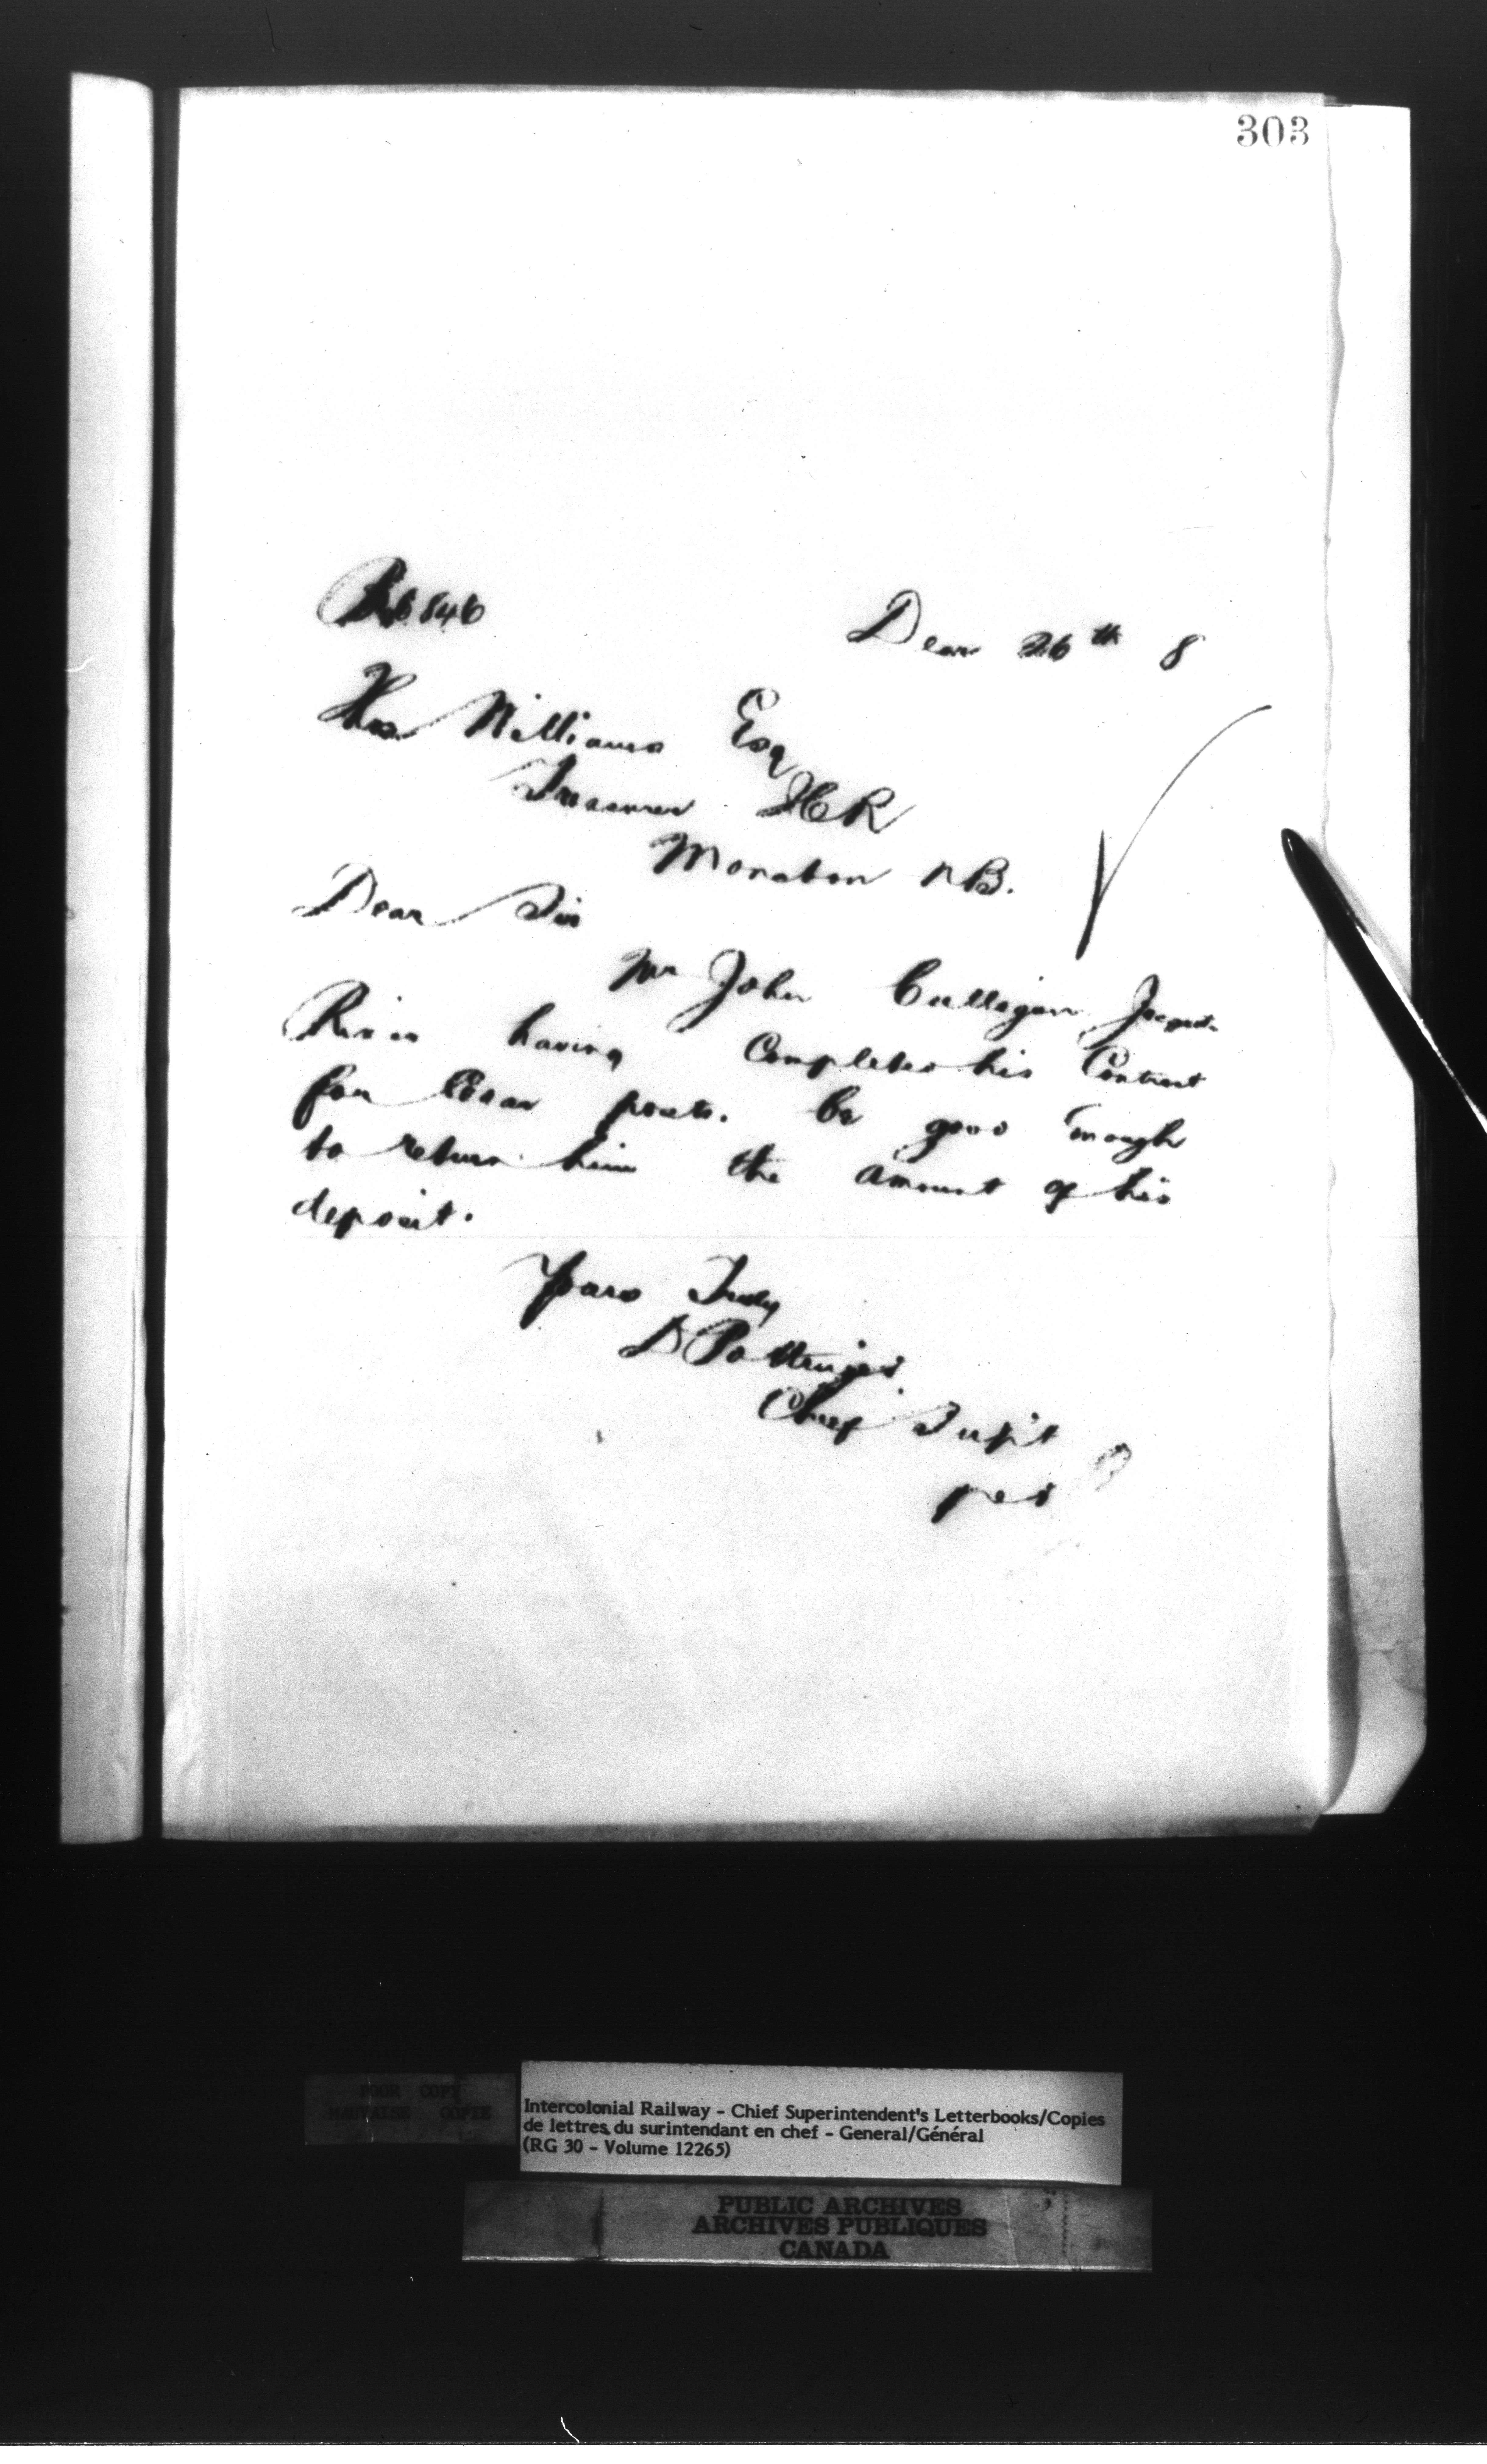 303
846
26th 8
Thos Williams Esq
Treasurer ICR
Moncton NB.
Dear Sir
Mr John Culligan Jacquet
River having completed his Contract
for Cedar posts. be good enough
to return him the amount of his
deposit.
Yours Truly
D Pottinger
Chief Supt
per
POOR COPY
MAUVAISE COPIE
Intercolonial Railway - Chief Superintendent's Letterbooks/Copies
de lettres du surintendant en chef - General/Général
(RG 30 - Volume 12265)
PUBLIC ARCHIVES
ARCHIVES PUBLIQUES
CANADA